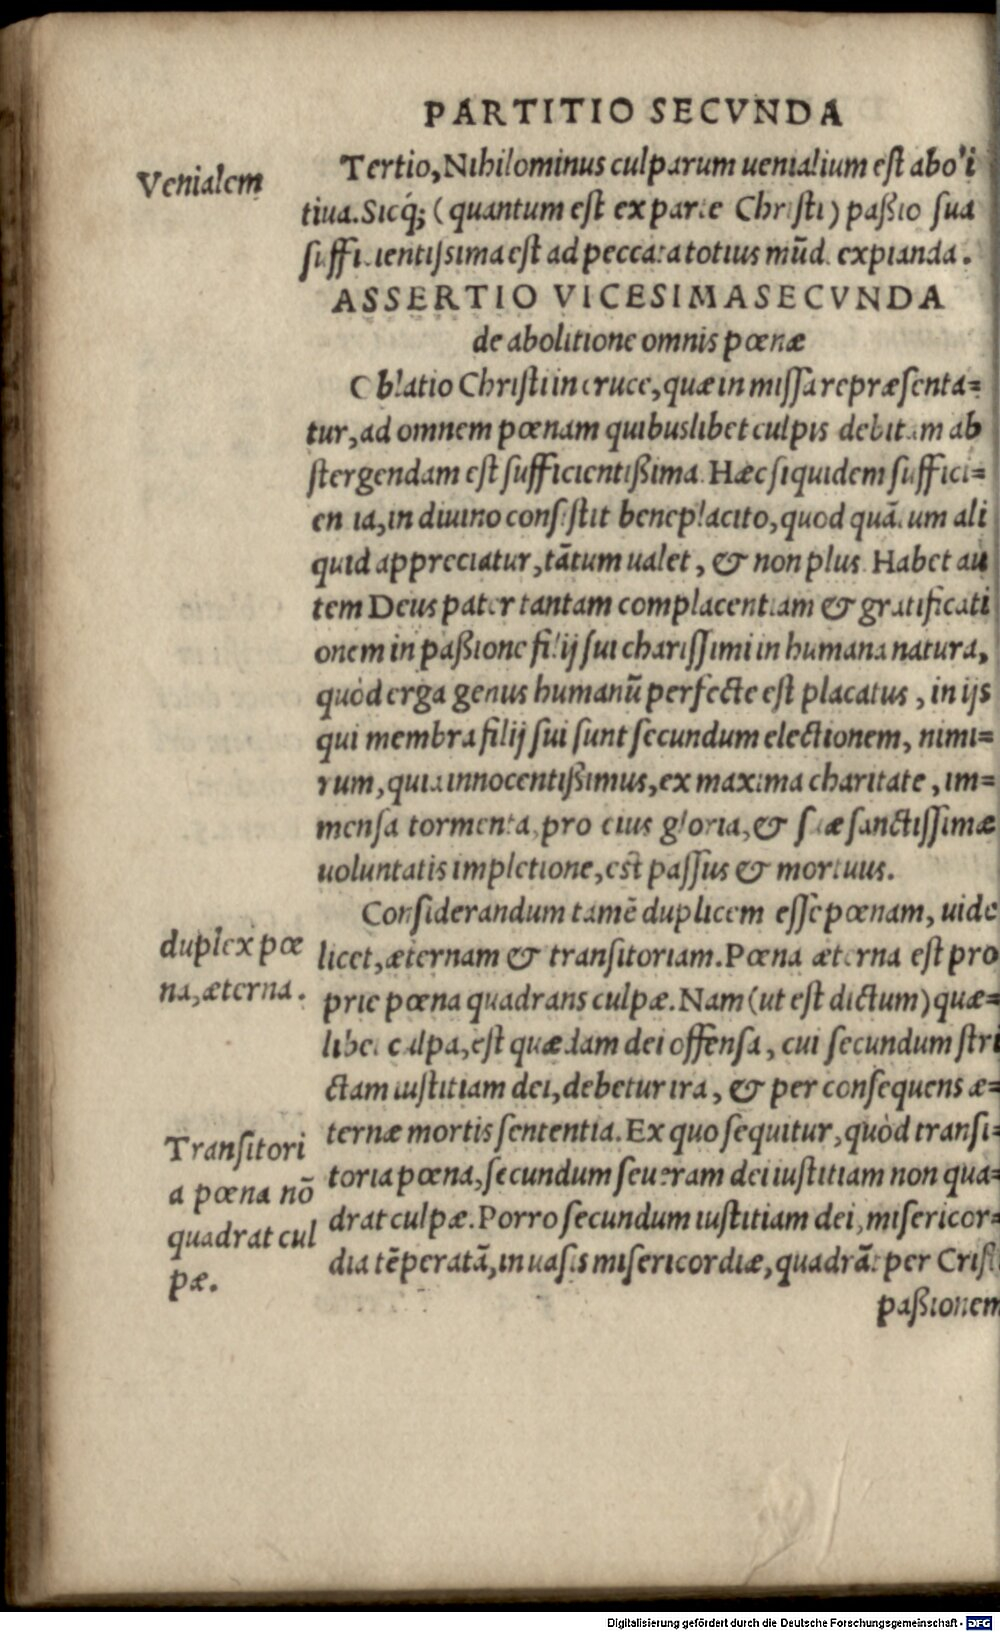 PARTITIO SECVNDA
Venialem
Tertio, Nihilominus culparum uenialium est aboli
tiua. Sicq́; (quantum est ex parte Christi) paßio sua
sufficientissima est ad peccata totius mũdi expianda.
ASSERTIO VICESIMASECVNDA
de abolitione omnis pœnæ
Oblatio Christi in cruce, quæ in missa repræsenta=
tur, ad omnem pœnam quibuslibet culpis debitam ab
stergendam est sufficientißima. Hæc siquidem suffici=
entia, in diuino consistit beneplacito, quod quãtum ali
quid appreciatur, tãtum ualet, & non plus. Habet au
tem Deus pater tantam complacentiam & gratificati
onem in paßione filij sui charissimi in humana natura,
quòd erga genus humanũ perfecte est placatus, in ijs
qui membra filij sui sunt secundum electionem, nimi=
rum, quia innocentißimus, ex maxima charitate, im=
mensa tormenta, pro eius gloria, & suæ sanctissimæ
uoluntatis impletione, est passus & mortuus.
Considerandum tamẽ duplicem esse pœnam, uide
duplex pœ
na, æterna.
licet, æternam & transitoriam. Pœna æterna est pro
prie pœna quadrans culpæ. Nam (ut est dictum) quæ=
libet culpa, est quædam dei offensa, cui secundum stri
ctam iustitiam dei, debetur ira, & per consequens æ=
ternæ mortis sententia. Ex quo sequitur, quòd transi=
Transitori
a pœna nõ
quadrat cul
pæ.
toria pœna, secundum seueram dei iustitiam non qua=
drat culpæ. Porro secundum iustitiam dei, misericor=
dia tẽperatã, in uasis misericordiæ, quadrãt per Cristi
paßionem
Digitalisierung gefördert durch die Deutsche Forschungsgemeinschaft - DFG